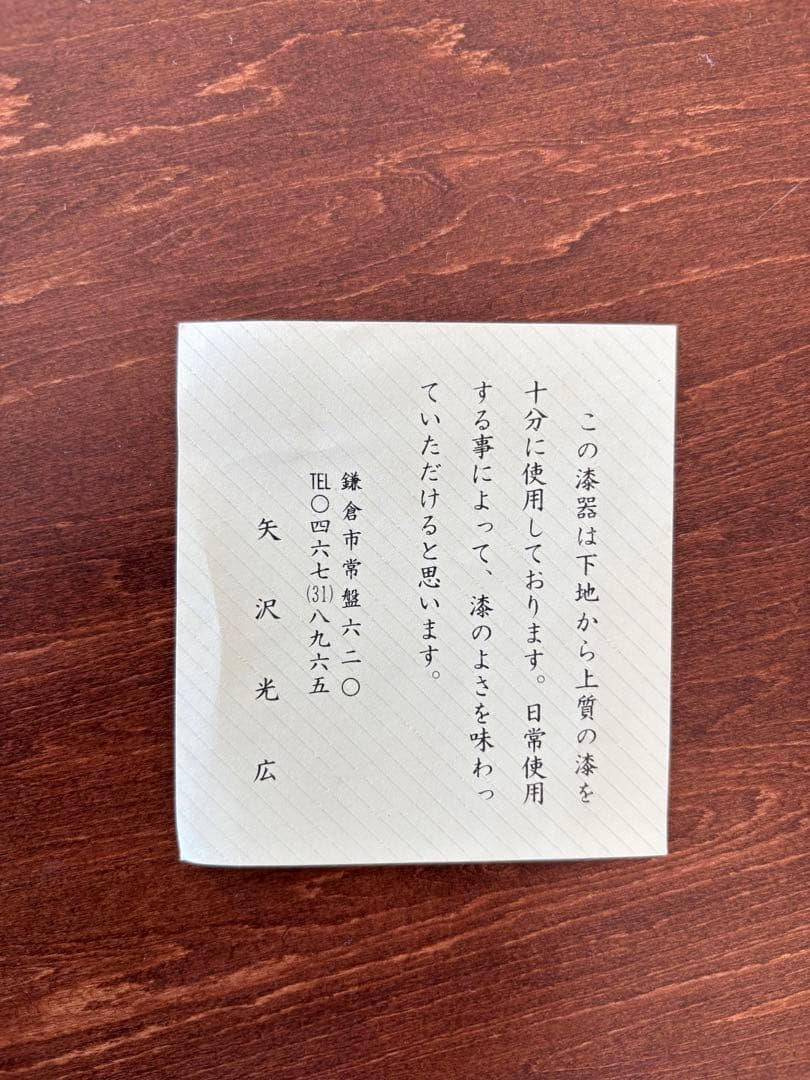 この漆器は下地から上質の漆を
十分に使用しております。日常使用
する事によって、漆のよさを味わっ
ていただけると思います。
鎌倉市常盤六二〇
TEL〇四六七(31)八九六五
矢沢光広